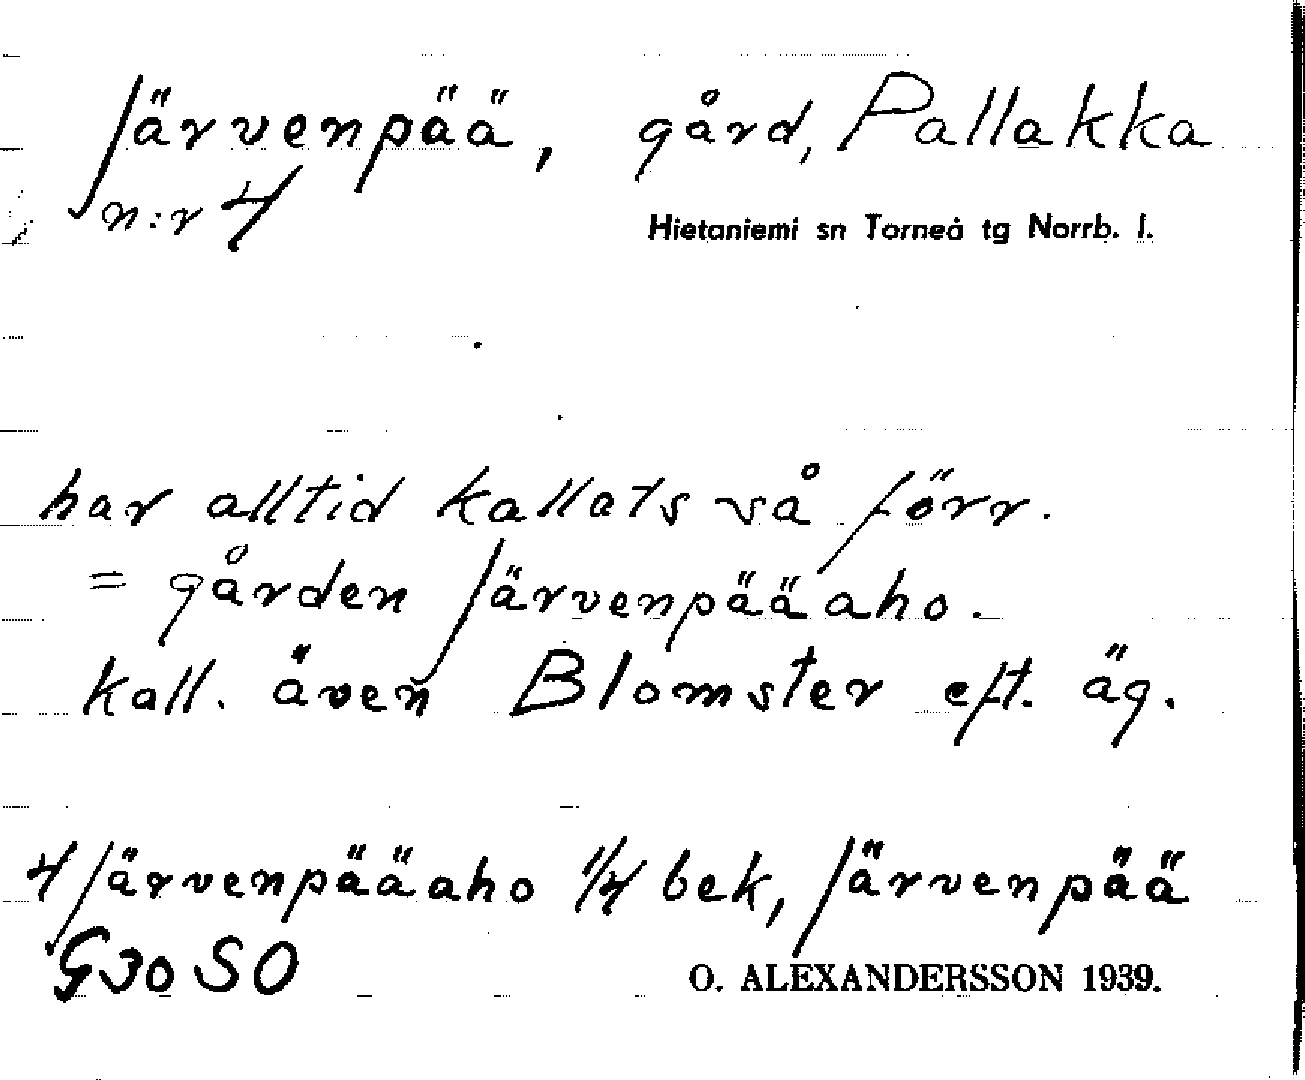 Järvenpää, gård, Pallakka
n:r 4
Hietaniemi sn Torneå tg Norrb. l.
har alltid kallats så förr.
= gården Järvenpääaho.
kall. även Blomster eft. äg.
4 Järvenpääaho 1/4 bek, Järvenpää
G30 SO
O. ALEXANDERSSON 1939.